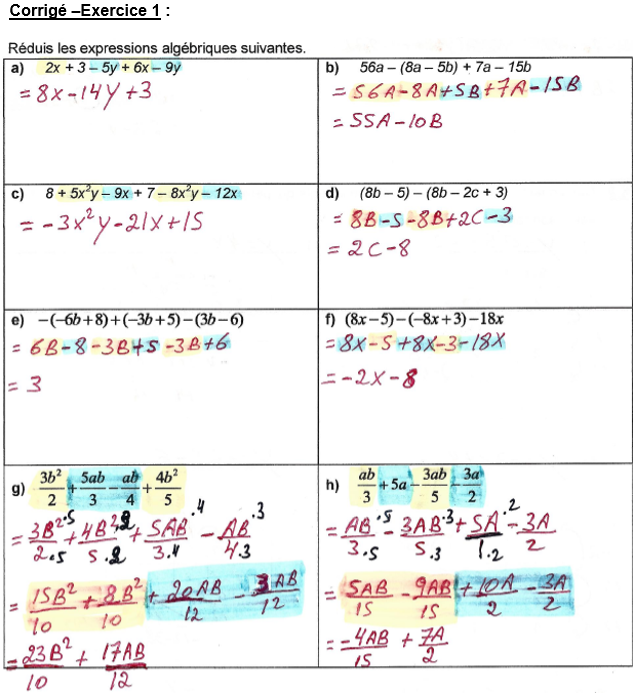 Corrigé –Exercice 1 :
Réduis les expressions algébriques suivantes.
a) 2x + 3 – 5y + 6x – 9y
= 8x - 14y + 3
b) 56a – (8a – 5b) + 7a – 15b
= 56A - 8A + 5B + 7A - 15B
= 55A - 10B
c) 8 + 5x²y – 9x + 7 – 8x²y – 12x
= -3x²y - 21x + 15
d) (8b – 5) – (8b – 2c + 3)
= 8B - 5 - 8B + 2C - 3
= 2C - 8
e) –(–6b+8)+(–3b+5)–(3b–6)
= 6B - 8 - 3B + 5 - 3B + 6
= 3
f) (8x–5)–(–8x+3)–18x
= 8x - 5 + 8x - 3 - 18x
= -2x - 8
g) 3b²/2 + 5ab/3 – ab/4 + 4b²/5
= 3B²·5/2·5 + 4B²·2/5·2 + 5AB·4/3·4 - AB·3/4·3
= 15B²/10 + 8B²/10 + 20AB/12 - 3AB/12
= 23B²/10 + 17AB/12
h) ab/3 + 5a – 3ab/5 – 3a/2
= AB·5/3·5 - 3AB·3/5·3 + 5A·2/1·2 - 3A/2
= 5AB/15 - 9AB/15 + 10A/2 - 3A/2
= -4AB/15 + 7A/2